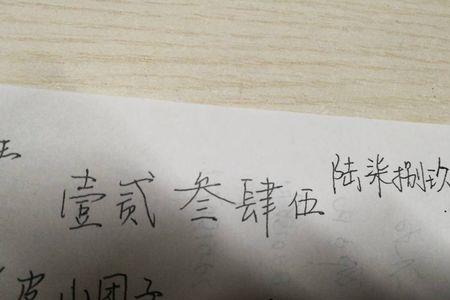 壹贰叁肆伍陆柒捌玖
皮小团子